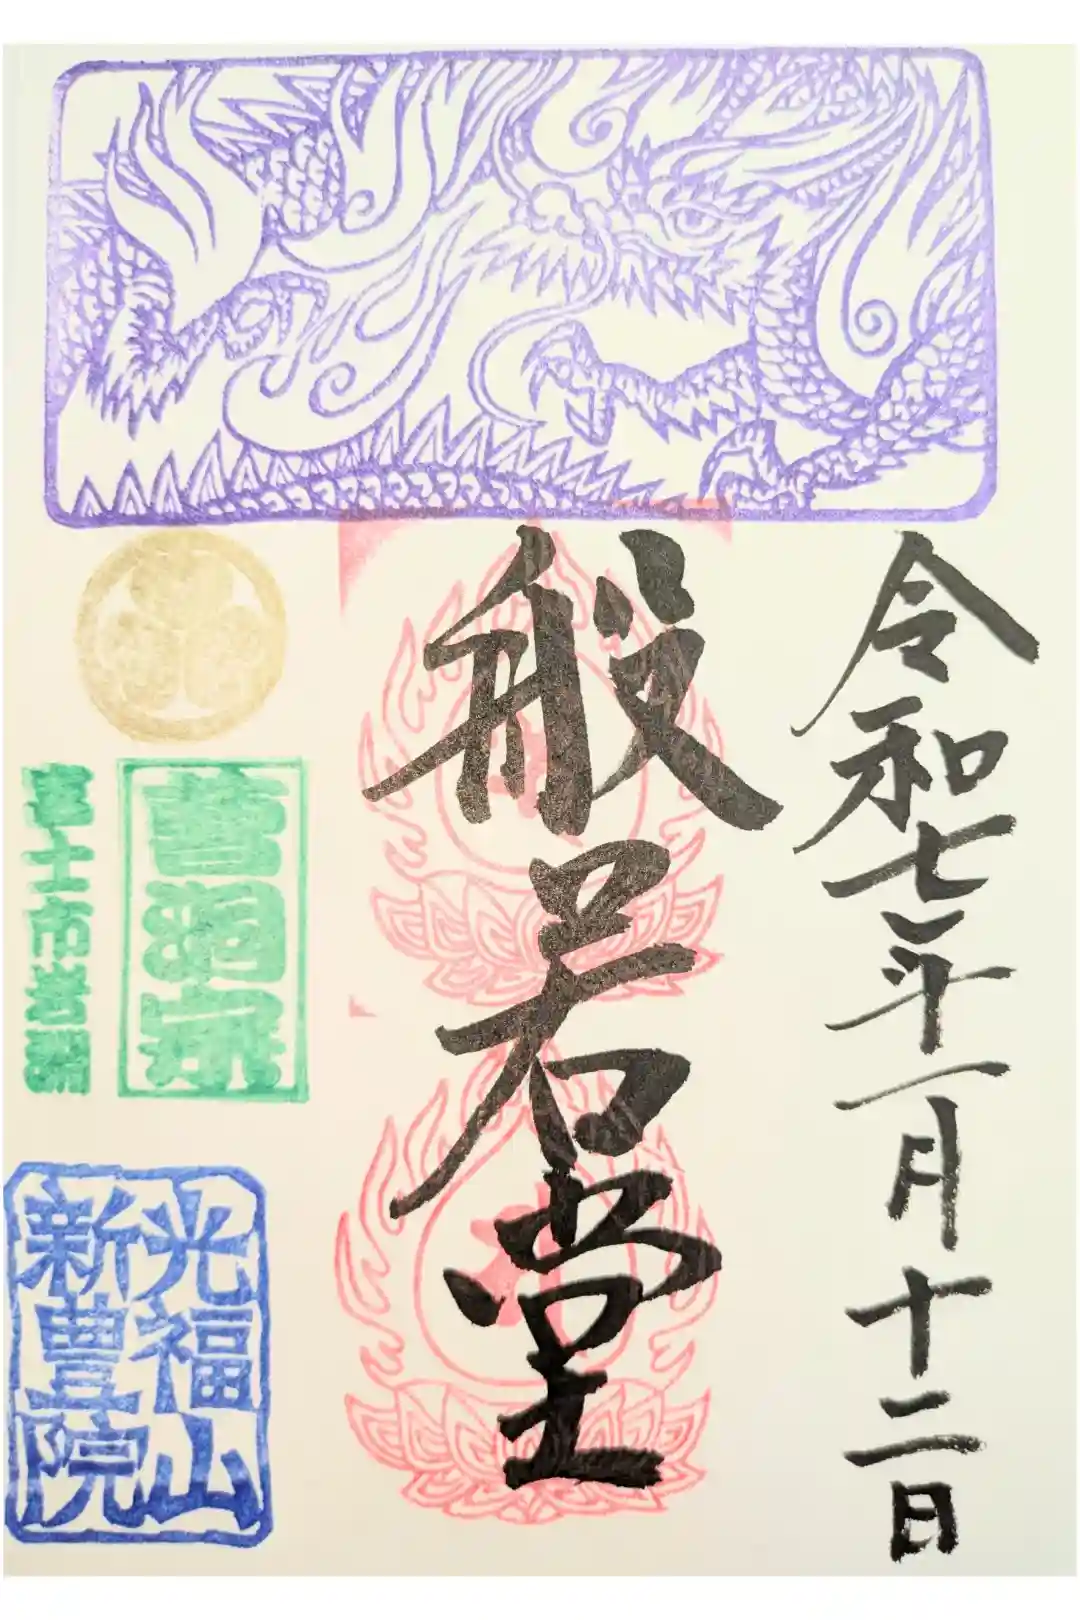 令和七年一月十二日
般若堂
曹洞宗
富士市岩淵
光福山
新豊院